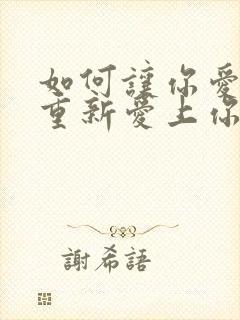 如何讓你愛
重新愛上你
謝希語